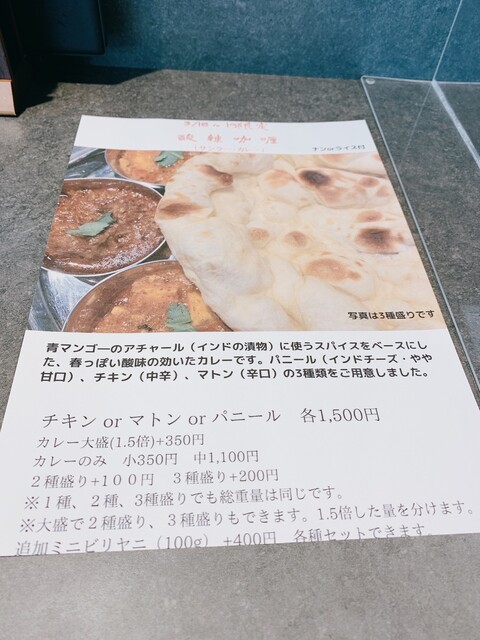 酸辣咖喱
(サンラーカレー)
ナンorライス付
写真は3種盛りです
青マンゴーのアチャール(インドの漬物)に使うスパイスをベースにし
た、春っぽい酸味の効いたカレーです。パニール(インドチーズ・やや
甘口)、チキン(中辛)、マトン(辛口)の3種類をご用意しました。
チキン or マトン or パニール 各1,500円
カレー大盛(1.5倍)+350円
カレーのみ 小350円 中1,100円
2種盛り+100円 3種盛り+200円
※1種、2種、3種盛りでも総重量は同じです。
※大盛で2種盛り、3種盛りもできます。1.5倍した量を分けます。
追加ミニビリヤニ(100g) +400円 各種セットできます。